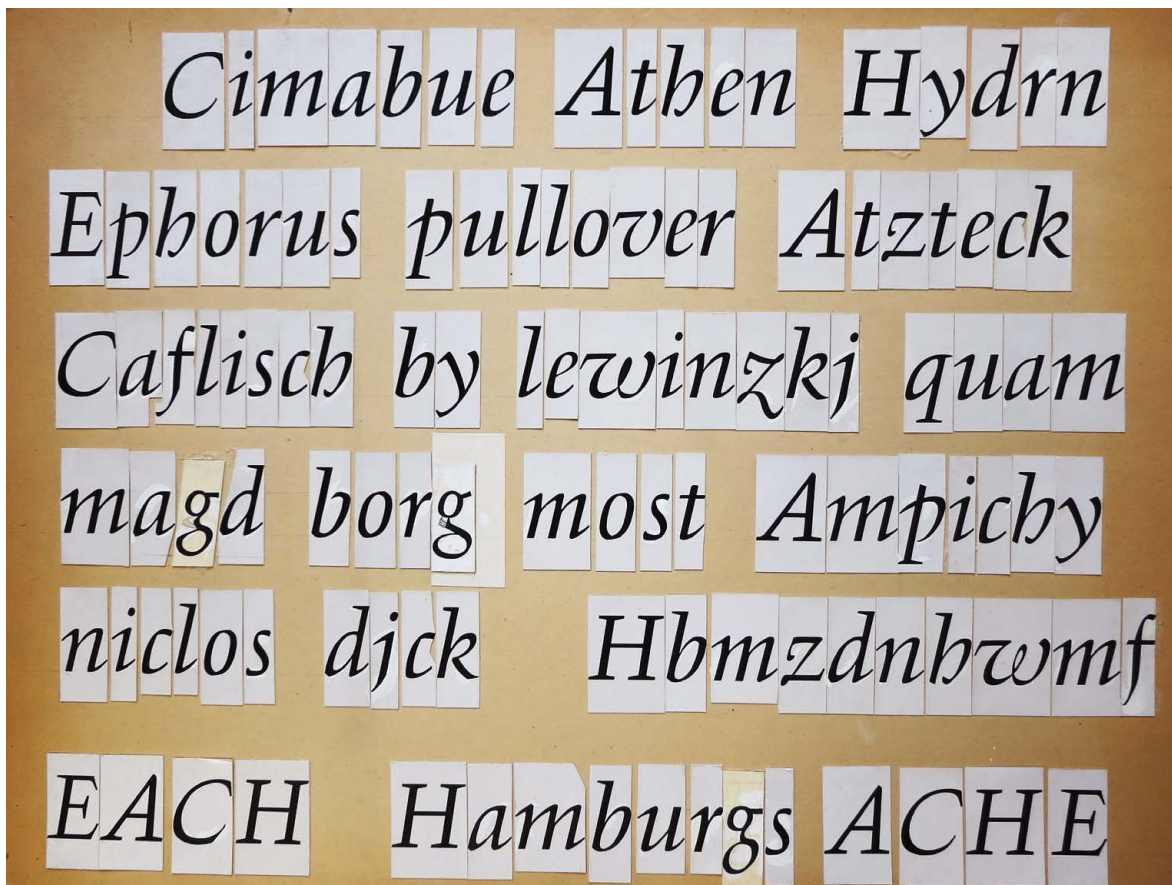 Cimabue Athen Hydrn
Ephorus pullover Atzteck
Caflisch by lewinzkj quam
magd borg most Ampichy
niclos djck Hbmzdnhwmf
EACH Hamburgs ACHE